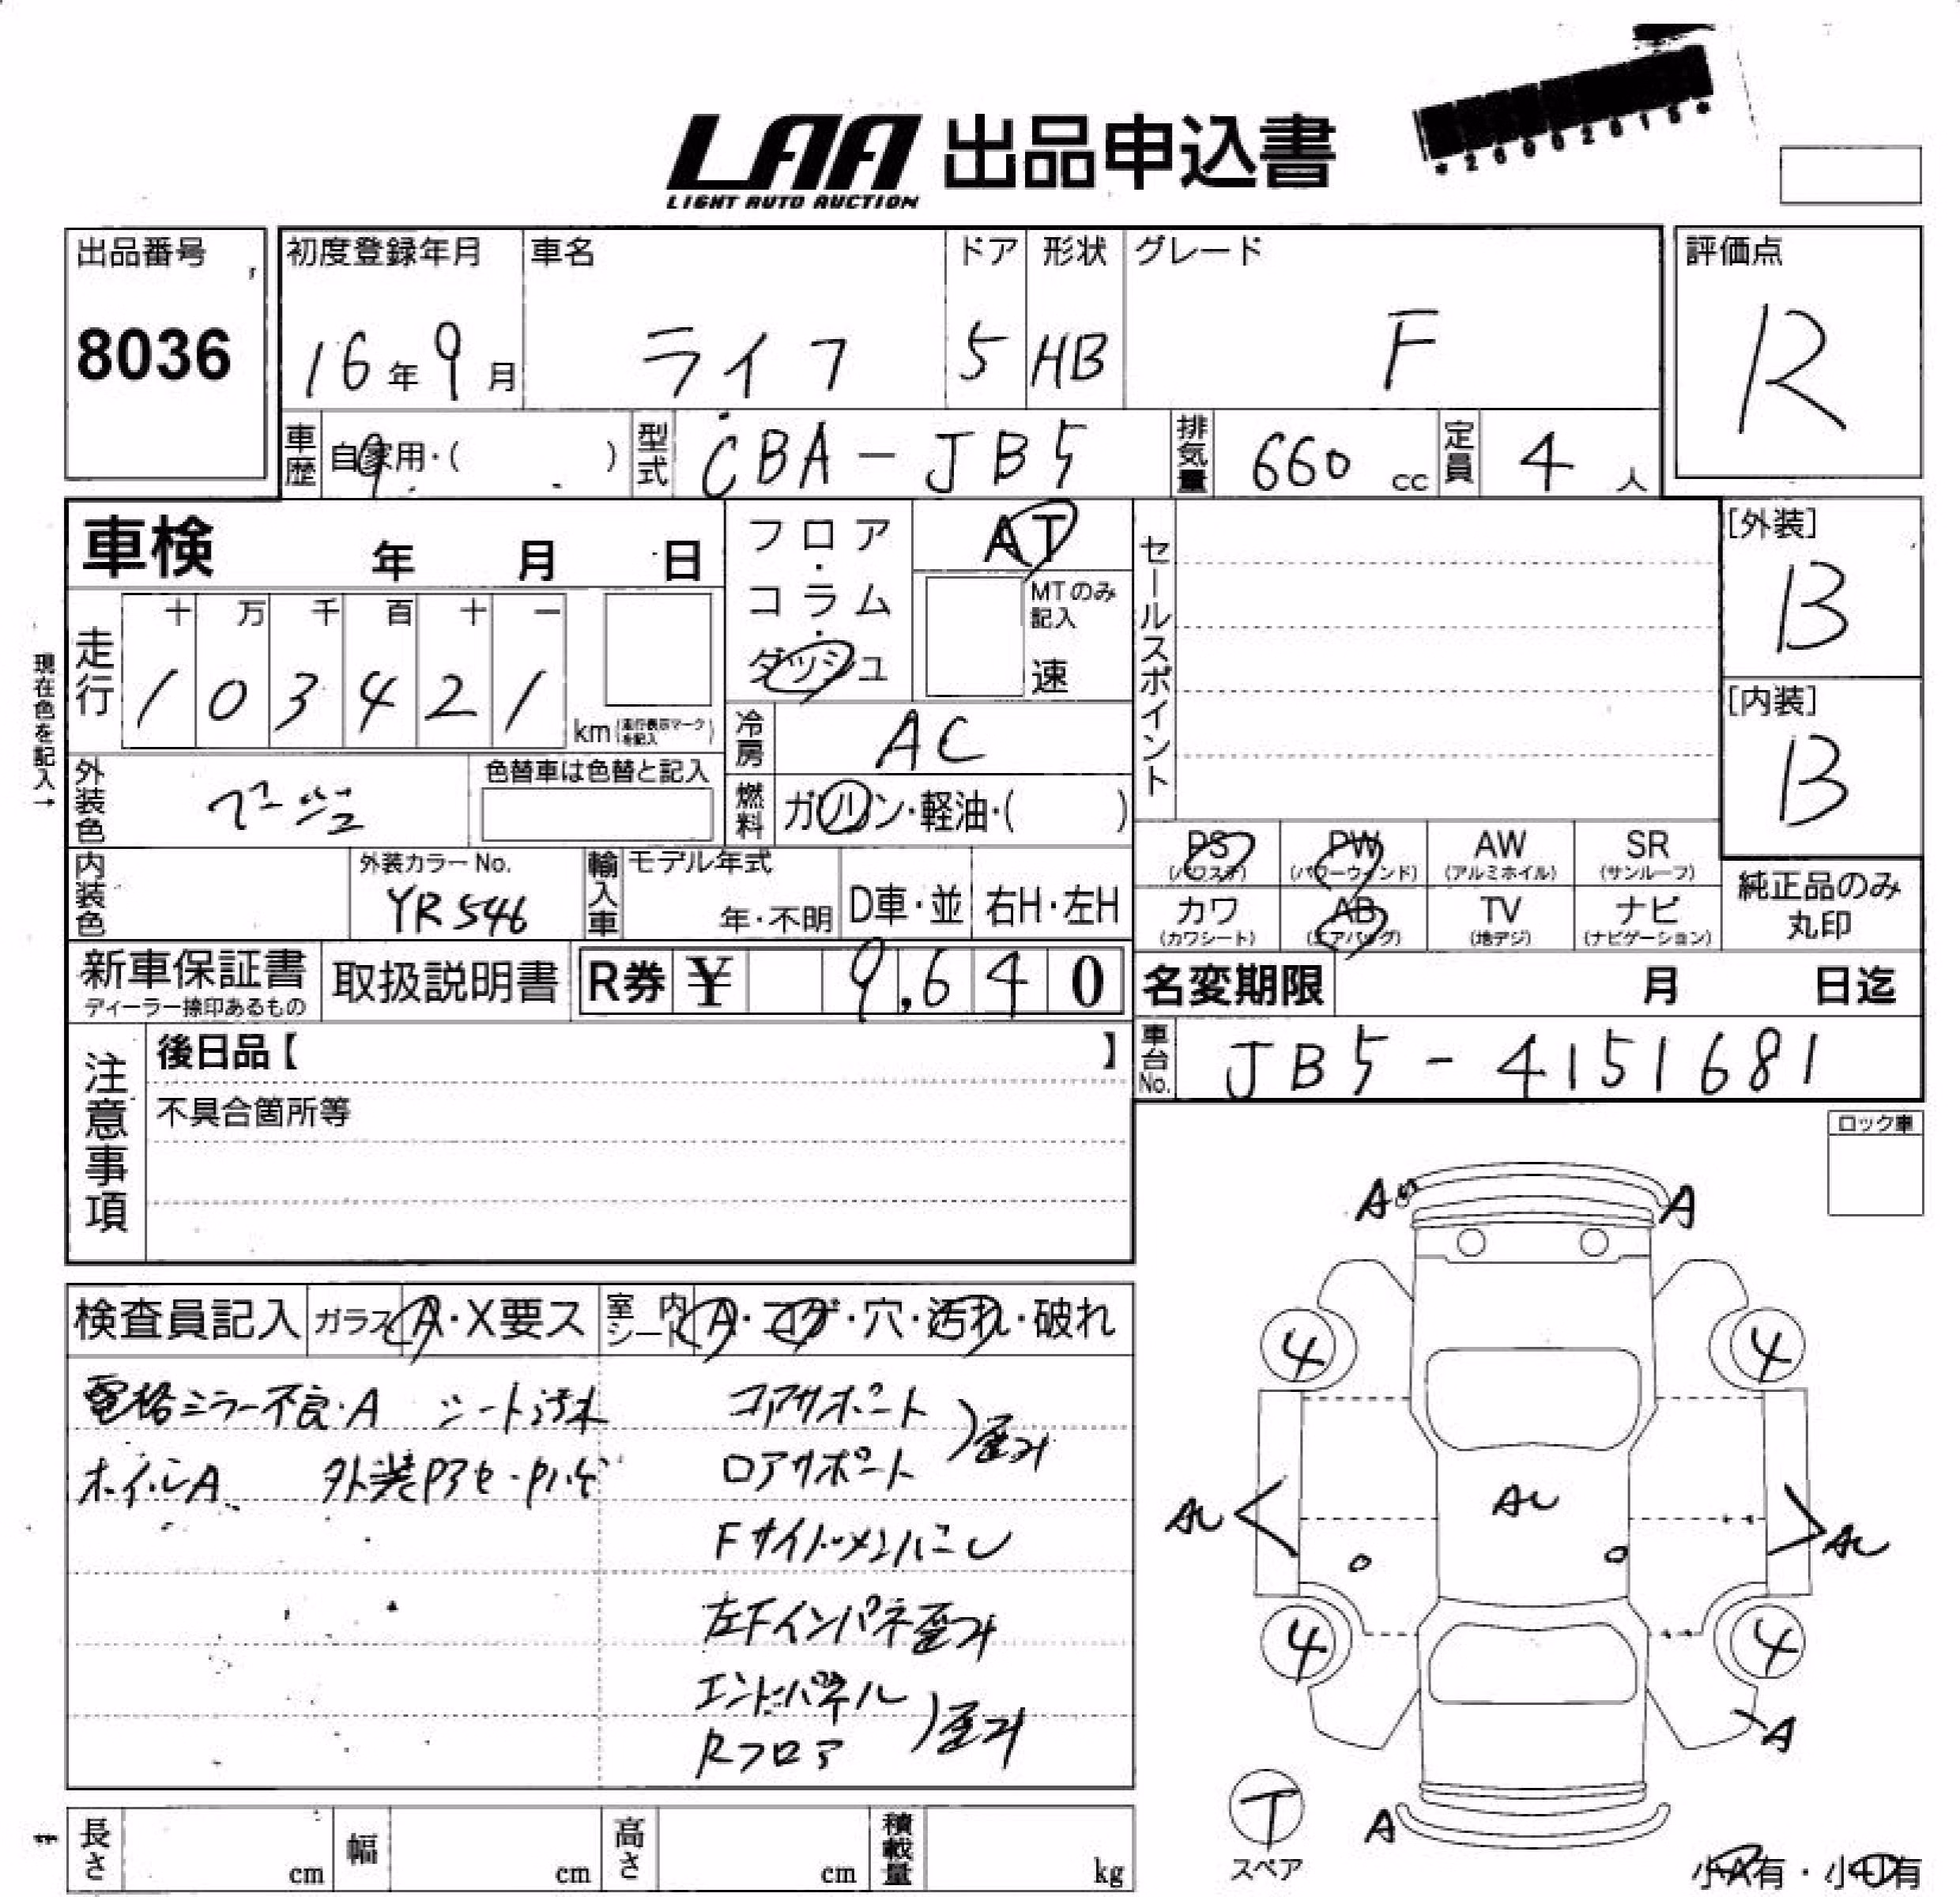 LAA 出品申込書
LIGHT AUTO AUCTION
*26002615*
出品番号
8036
初度登録年月
16年 9月
車名
ライフ
ドア
5
形状
HB
グレード
F
評価点
R
車歴
自家用・( )
型式
CBA-JB5
排気量
660 cc
定員
4 人
車検 年 月 日
フロア・コラム・ダッシュ
AT
MTのみ記入
速
セールスポイント
[外装]
B
[内装]
B
現在色を記入→
走行
十 万 千 百 十 一
1 0 3 4 2 1
km (走行表示マークを記入)
冷房
AC
燃料
ガソリン・軽油・( )
外装色
ベージュ
色替車は色替と記入
内装色
外装カラーNo.
YR546
輸入車
モデル年式
年・不明
D車・並
右H・左H
PS
(パワステ)
PW
(パワーウィンド)
AW
(アルミホイル)
SR
(サンルーフ)
カワ
(カワシート)
AB
(エアバッグ)
TV
(地デジ)
ナビ
(ナビゲーション)
純正品のみ
丸印
新車保証書
ディーラー捺印あるもの
取扱説明書
R券 ¥ 9,640
名変期限 月 日迄
車台No.
JB5-4151681
注意事項
後日品【 】
不具合箇所等
ロック車
検査員記入
ガラス A・X要ス
室内シート A・コゲ・穴・汚れ・破れ
電格ミラー不良・A シート汚れ
ホイルA 外装Pアセ・Pハゲ
コアサポート
ロアサポート
歪み
Fサイドメンバーし
左Fインパネ歪み
エンドパネル
Rフロア
歪み
A A
4 4
AU AU AU
4 4
A
T
スペア
A
小A有・小U有
長さ cm
幅 cm
高さ cm
積載量 kg